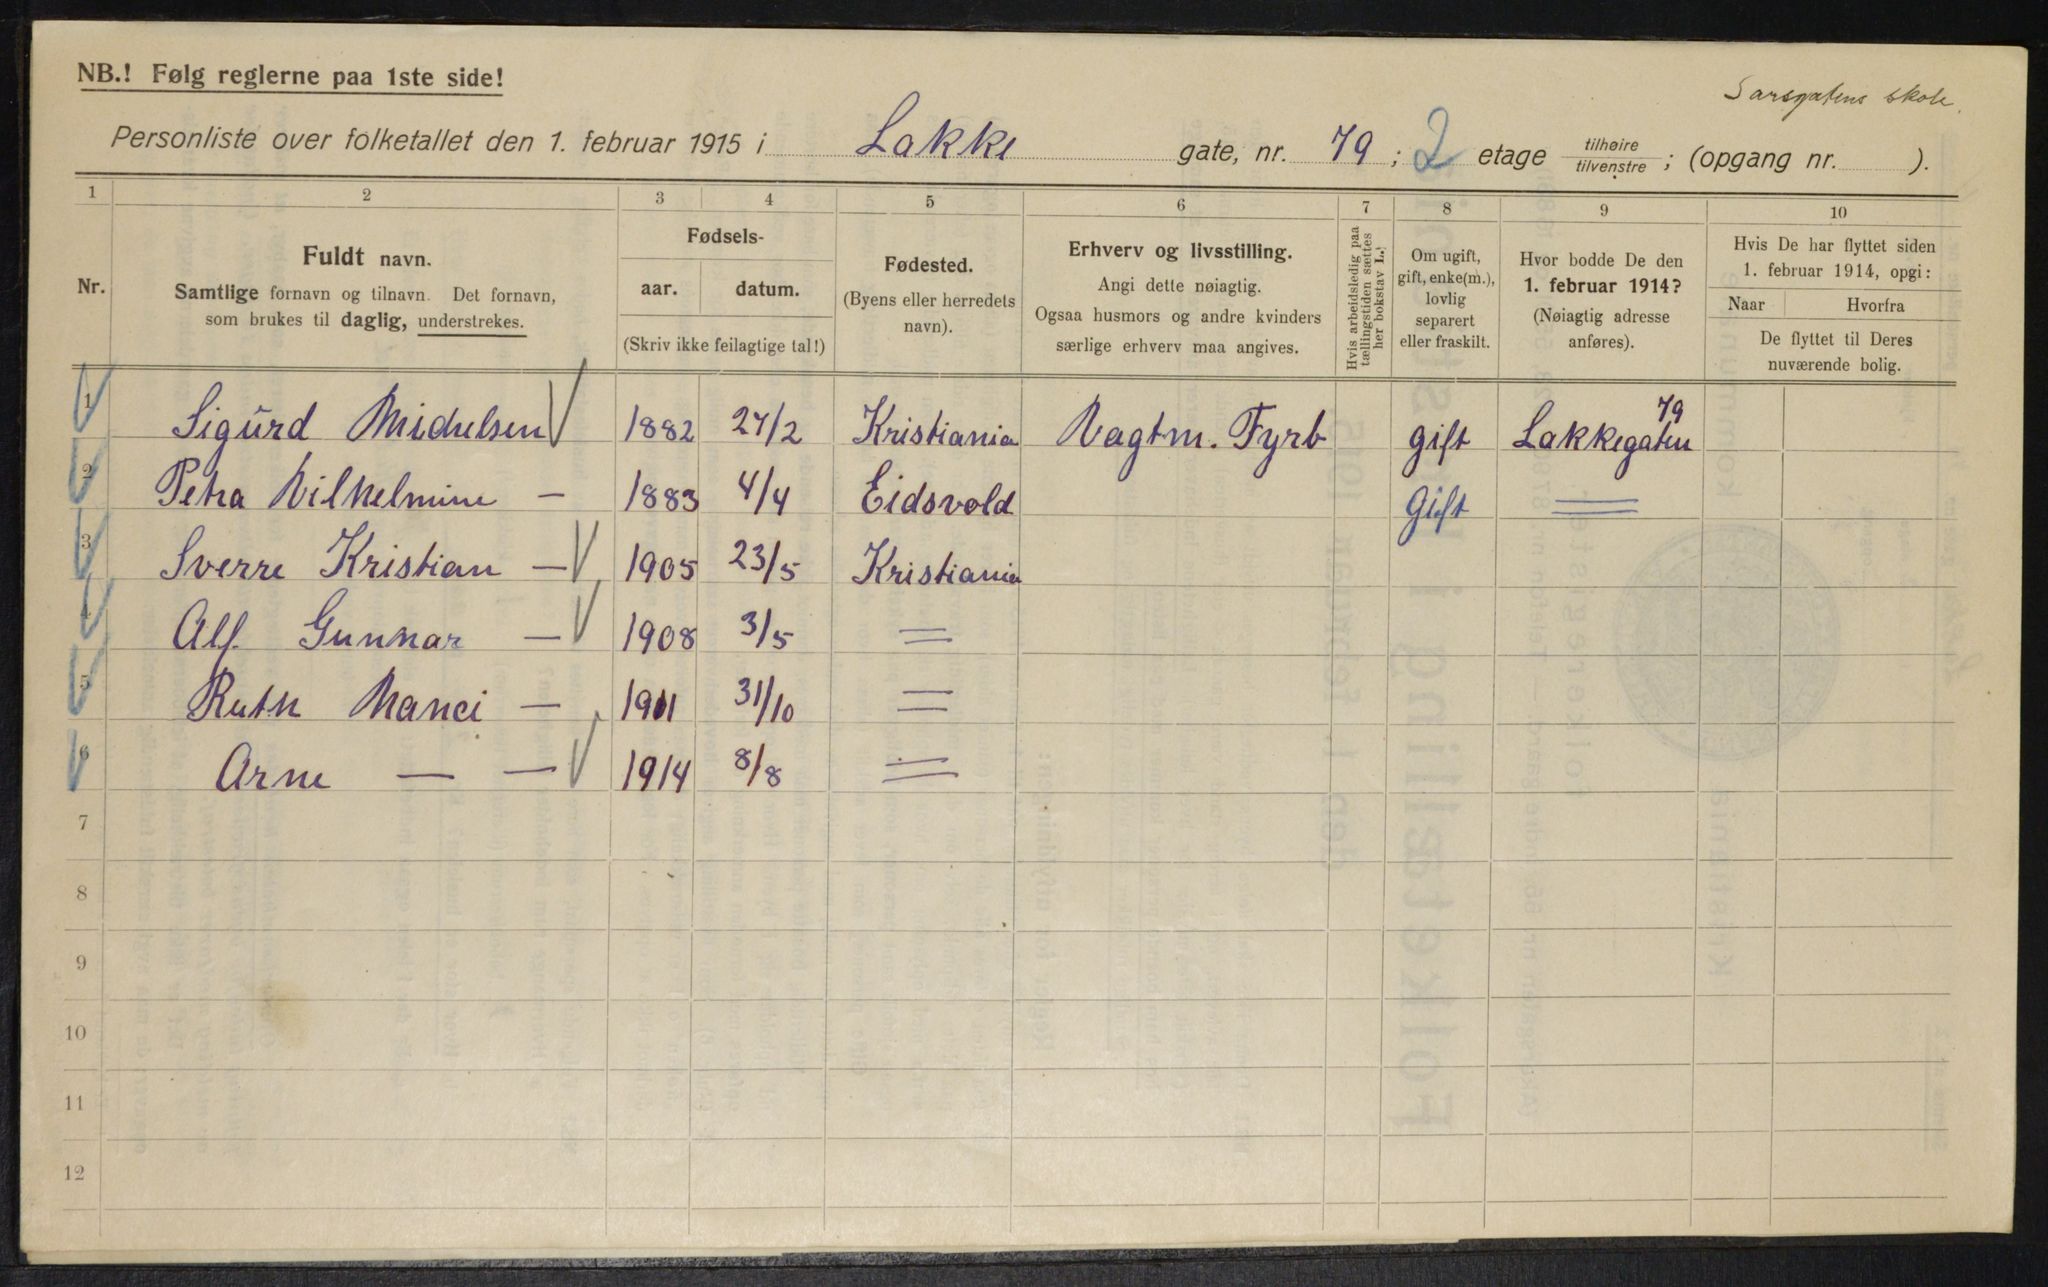 NB.! Følg reglerne paa 1ste side!
Sarsgatens skole.
Personliste over folketallet den 1. februar 1915 i Lakke gate, nr. 79; 2 etage tilhøire tilvenstre; (opgang nr. ).
1 2 3 4 5 6 7 8 9 10
Nr.
Fuldt navn.
Samtlige fornavn og tilnavn. Det fornavn,
som brukes til daglig, understrekes.
Fødsels-
aar. datum.
(Skriv ikke feilagtige tal!)
Fødested.
(Byens eller herredets
navn).
Erhverv og livsstilling.
Angi dette nøiagtig.
Ogsaa husmors og andre kvinders
særlige erhverv maa angives.
Hvis arbeidsledig paa
tællingstiden sættes
her bokstav L.
Om ugift,
gift, enke(m.),
lovlig
separert
eller fraskilt.
Hvor bodde De den
1. februar 1914?
(Nøiagtig adresse
anføres).
Hvis De har flyttet siden
1. februar 1914, opgi:
Naar Hvorfra
De flyttet til Deres
nuværende bolig.
1 Sigurd Michelsen 1882 27/2 Kristiania Vagtm. Fyrb gift Lakkegaten 79
2 Petra Vilhelmine — 1883 4/4 Eidsvold Gift =
3 Sverre Kristian — 1905 23/5 Kristiania
4 Alf Gunnar — 1908 3/5 =
5 Ruth Nanci — 1911 31/10 =
6 Arne — — 1914 8/8 =
7
8
9
10
11
12